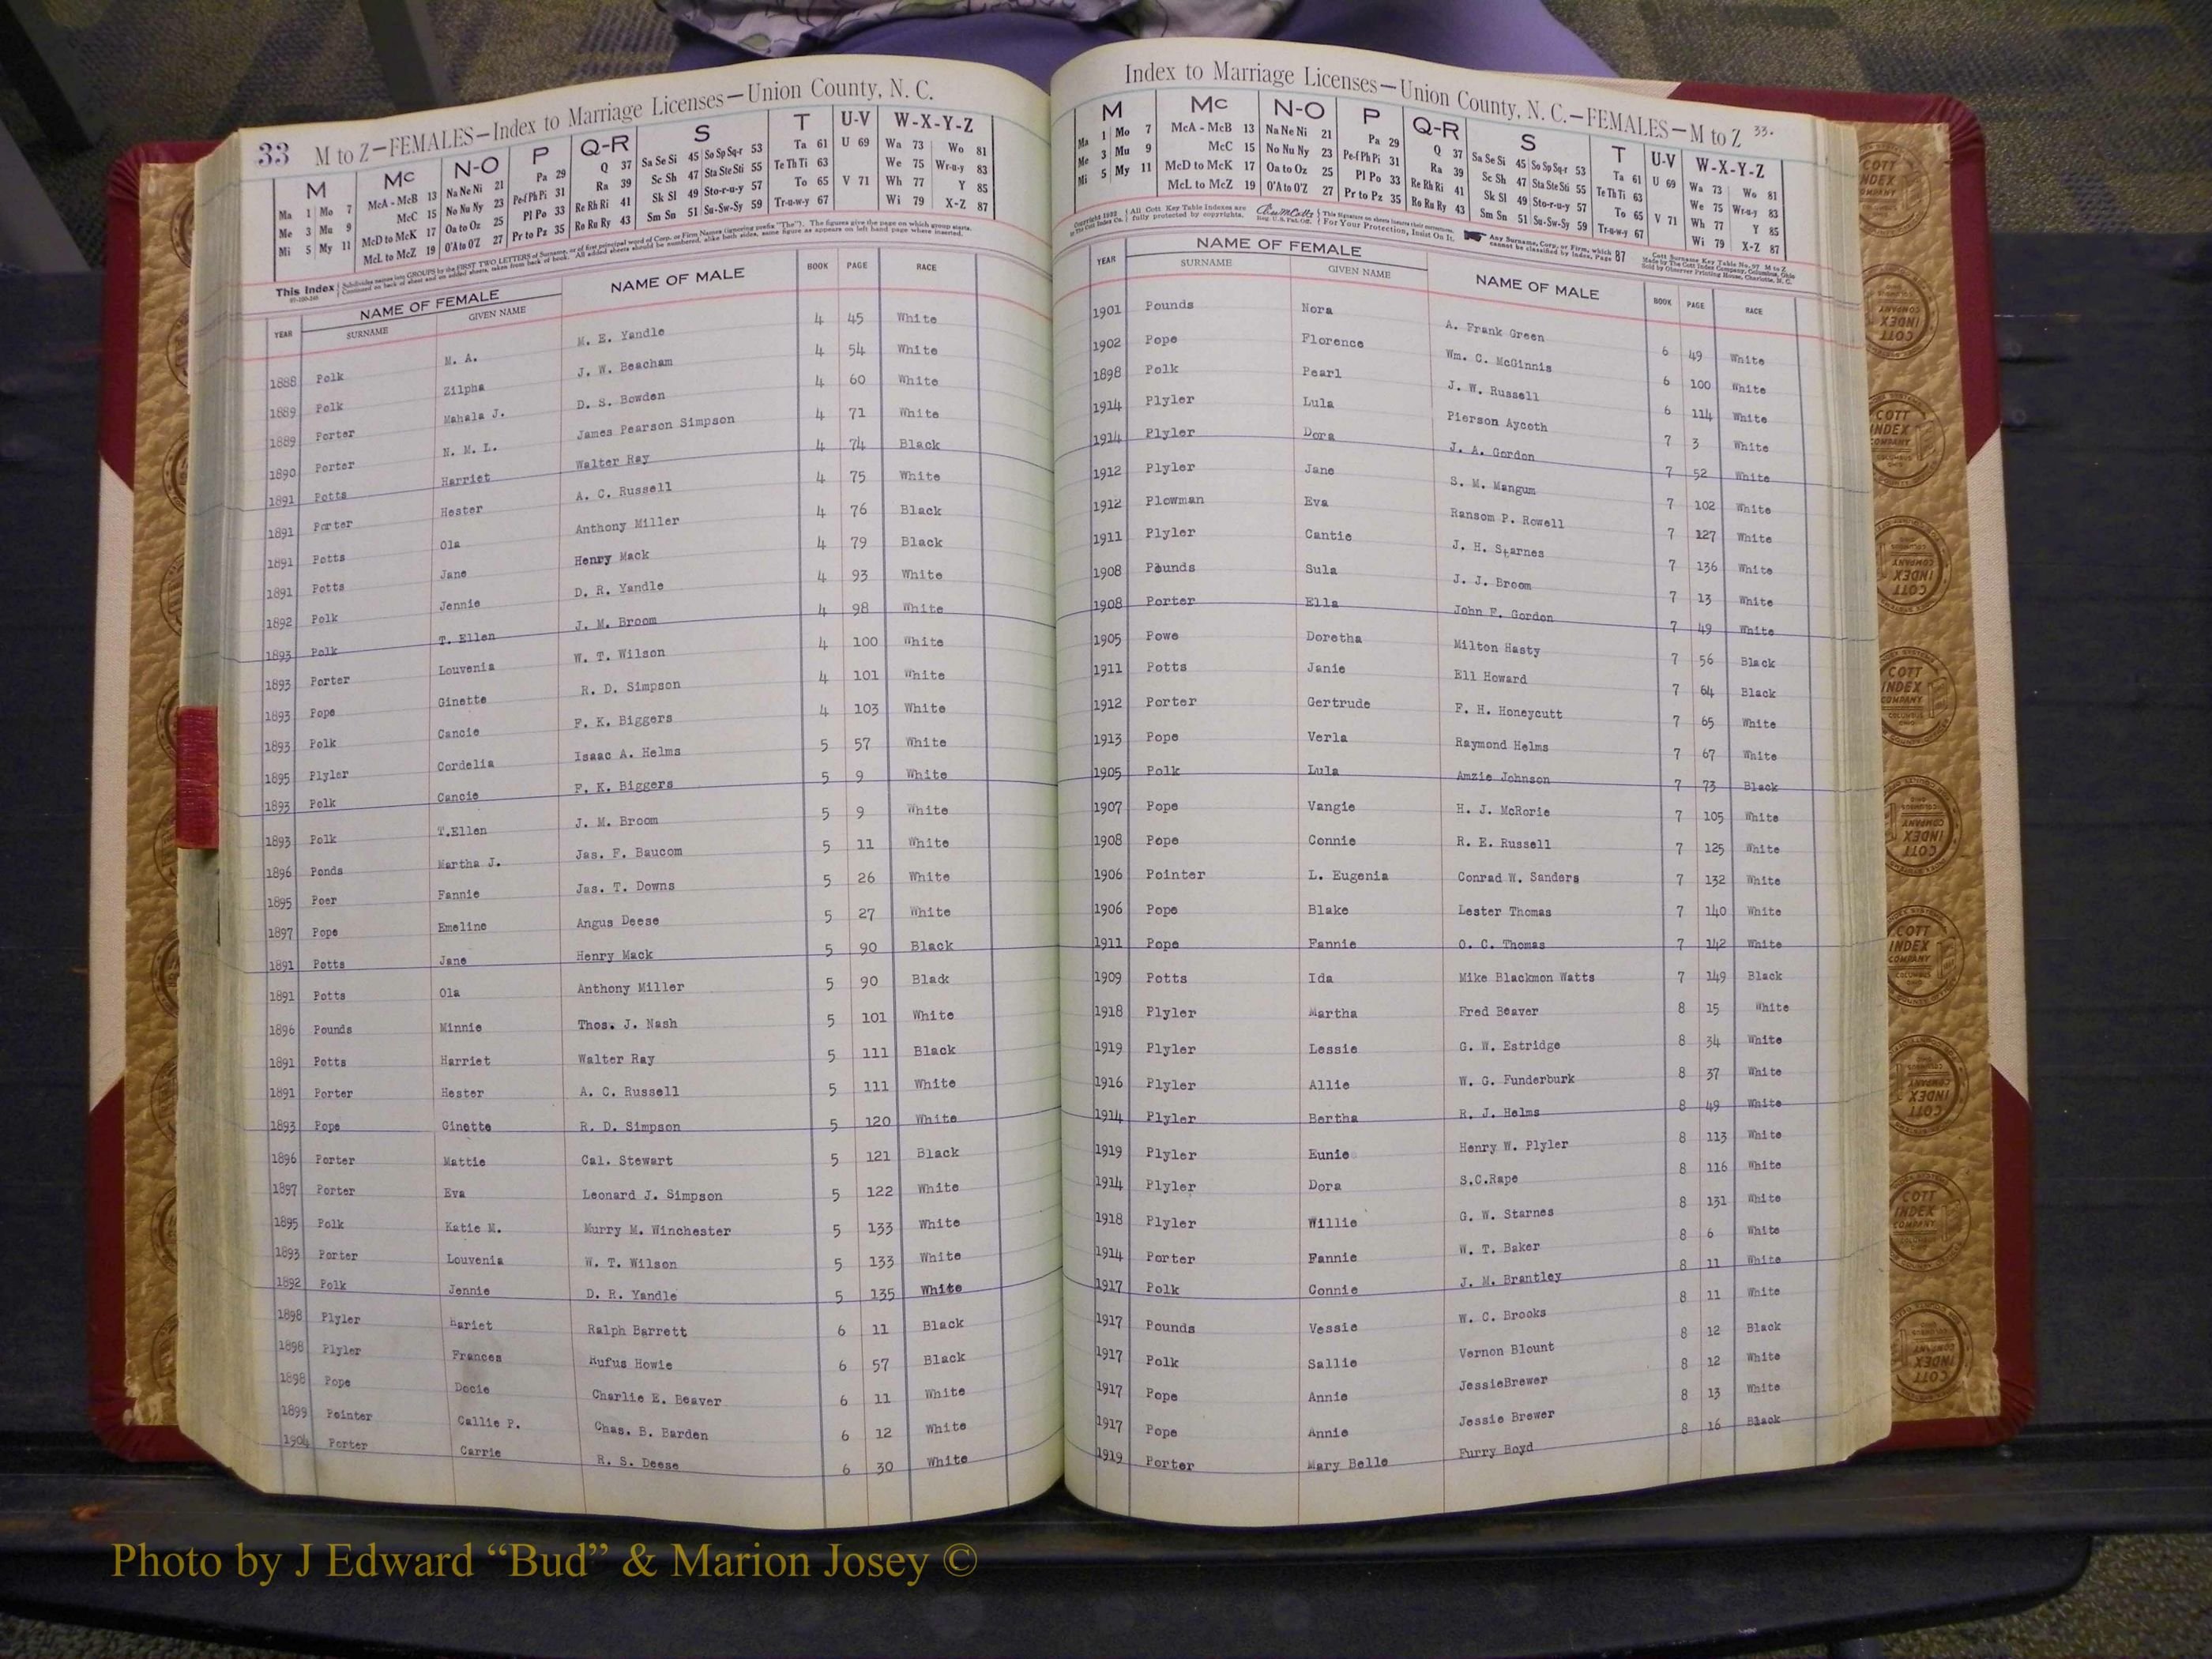 33 M to Z—FEMALES—Index to Marriage Licenses—Union County, N. C.
M Mc N-O P Q-R S T U-V W-X-Y-Z
Ma 1 Mo 7 McA - McB 13 Na Ne Ni 21 Pa 29 Q 37 Sa Se Si 45 So Sp Sq-r 53 Ta 61 U 69 Wa 73 Wo 81
Me 3 Mu 9 McC 15 No Nu Ny 23 Pe-f Ph Pi 31 Ra 39 Sc Sh 47 Sta Ste Sti 55 Te Th Ti 63 We 75 Wr-u-y 83
Mi 5 My 11 McD to McK 17 Oa to Oz 25 Pl Po 33 Re Rh Ri 41 Sk Sl 49 Sto-r-u-y 57 To 65 V 71 Wh 77 Y 85
McL to McZ 19 O'A to O'Z 27 Pr to Pz 35 Ro Ru Ry 43 Sm Sn 51 Su-Sw-Sy 59 Tr-u-w-y 67 Wi 79 X-Z 87
This Index Subdivides names into GROUPS by the FIRST TWO LETTERS of Surname, or of first principal word of Corp. or Firm Names (ignoring prefix "The"). The figures give the page on which group starts.
Continued on back of sheet and on added sheets, taken from back of book. All added sheets should be numbered, alike both sides, same figure as appears on left hand page where inserted.
YEAR NAME OF FEMALE SURNAME GIVEN NAME NAME OF MALE BOOK PAGE RACE
1888 Polk M. A. M. E. Yandle 4 45 White
1889 Polk Zilpha J. W. Beacham 4 54 White
1889 Porter Mahala J. D. S. Bowden 4 60 White
1890 Porter N. M. L. James Pearson Simpson 4 71 White
1891 Potts Harriet Walter Ray 4 74 Black
1891 Porter Hester A. C. Russell 4 75 White
1891 Potts Ola Anthony Miller 4 76 Black
1891 Potts Jane Henry Mack 4 79 Black
1892 Polk Jennie D. R. Yandle 4 93 White
1893 Polk T. Ellen J. M. Broom 4 98 White
1893 Porter Louvenia W. T. Wilson 4 100 White
1893 Pope Ginette R. D. Simpson 4 101 White
1893 Polk Cancie F. K. Biggers 4 103 White
1895 Plyler Cordelia Isaac A. Helms 5 57 White
1893 Polk Cancie F. K. Biggers 5 9 White
1893 Polk T.Ellen J. M. Broom 5 9 White
1896 Ponds Martha J. Jas. F. Baucom 5 11 White
1895 Poer Fannie Jas. T. Downs 5 26 White
1897 Pope Emeline Angus Deese 5 27 White
1891 Potts Jane Henry Mack 5 90 Black
1891 Potts Ola Anthony Miller 5 90 Black
1896 Pounds Minnie Thos. J. Nash 5 101 White
1891 Potts Harriet Walter Ray 5 111 Black
1891 Porter Hester A. C. Russell 5 111 White
1893 Pope Ginette R. D. Simpson 5 120 White
1896 Porter Mattie Cal. Stewart 5 121 Black
1897 Porter Eva Leonard J. Simpson 5 122 White
1895 Polk Katie M. Murry M. Winchester 5 133 White
1893 Porter Louvenia W. T. Wilson 5 133 White
1892 Polk Jennie D. R. Yandle 5 135 White
1898 Plyler Hariet Ralph Barrett 6 11 Black
1898 Plyler Frances Rufus Howie 6 57 Black
1898 Pope Docie Charlie E. Beaver 6 11 White
1899 Pointer Callie P. Chas. B. Barden 6 12 White
1904 Porter Carrie R. S. Deese 6 30 White
Index to Marriage Licenses—Union County, N. C.—FEMALES—M to Z 33.
M Mc N-O P Q-R S T U-V W-X-Y-Z
Ma 1 Mo 7 McA - McB 13 Na Ne Ni 21 Pa 29 Q 37 Sa Se Si 45 So Sp Sq-r 53 Ta 61 U 69 Wa 73 Wo 81
Me 3 Mu 9 McC 15 No Nu Ny 23 Pe-f Ph Pi 31 Ra 39 Sc Sh 47 Sta Ste Sti 55 Te Th Ti 63 We 75 Wr-u-y 83
Mi 5 My 11 McD to McK 17 Oa to Oz 25 Pl Po 33 Re Rh Ri 41 Sk Sl 49 Sto-r-u-y 57 To 65 V 71 Wh 77 Y 85
McL to McZ 19 O'A to O'Z 27 Pr to Pz 35 Ro Ru Ry 43 Sm Sn 51 Su-Sw-Sy 59 Tr-u-w-y 67 Wi 79 X-Z 87
All Cott Key Table Indexes are fully protected by copyrights. For Your Protection, Insist On It. Any Surname, Corp. or Firm, which cannot be classified by Index, Page 87
YEAR NAME OF FEMALE SURNAME GIVEN NAME NAME OF MALE BOOK PAGE RACE
1901 Pounds Nora A. Frank Green 6 49 White
1902 Pope Florence Wm. C. McGinnis 6 100 White
1898 Polk Pearl J. W. Russell 6 114 White
1914 Plyler Lula Pierson Aycoth 7 3 White
1914 Plyler Dora J. A. Gordon 7 52 White
1912 Plyler Jane S. M. Mangum 7 102 White
1912 Plowman Eva Ransom P. Rowell 7 127 White
1911 Plyler Cantie J. H. Starnes 7 136 White
1908 Pounds Sula J. J. Broom 7 13 White
1908 Porter Ella John F. Gordon 7 49 White
1905 Powe Doretha Milton Hasty 7 56 Black
1911 Potts Janie Ell Howard 7 64 Black
1912 Porter Gertrude F. H. Honeycutt 7 65 White
1913 Pope Verla Raymond Helms 7 67 White
1905 Polk Lula Amzie Johnson 7 73 Black
1907 Pope Vangie H. J. McRorie 7 105 White
1908 Pope Connie R. E. Russell 7 125 White
1906 Pointer L. Eugenia Conrad W. Sanders 7 132 White
1906 Pope Blake Lester Thomas 7 140 White
1911 Pope Fannie O. C. Thomas 7 142 White
1909 Potts Ida Mike Blackmon Watts 7 149 Black
1918 Plyler Martha Fred Beaver 8 15 White
1919 Plyler Lessie G. W. Estridge 8 34 White
1916 Plyler Allie W. G. Funderburk 8 37 White
1914 Plyler Bertha R. J. Helms 8 49 White
1919 Plyler Eunie Henry W. Plyler 8 113 White
1914 Plyler Dora S.C.Rape 8 116 White
1918 Plyler Willie G. W. Starnes 8 131 White
1914 Porter Fannie W. T. Baker 8 6 White
1917 Polk Connie J. M. Brantley 8 11 White
1917 Pounds Vessie W. C. Brooks 8 11 White
1917 Polk Sallie Vernon Blount 8 12 Black
1917 Pope Annie JessieBrewer 8 12 White
1917 Pope Annie Jessie Brewer 8 13 White
1919 Porter Mary Belle Furry Boyd 8 16 Black
COTT INDEX COMPANY
Photo by J Edward “Bud” & Marion Josey ©